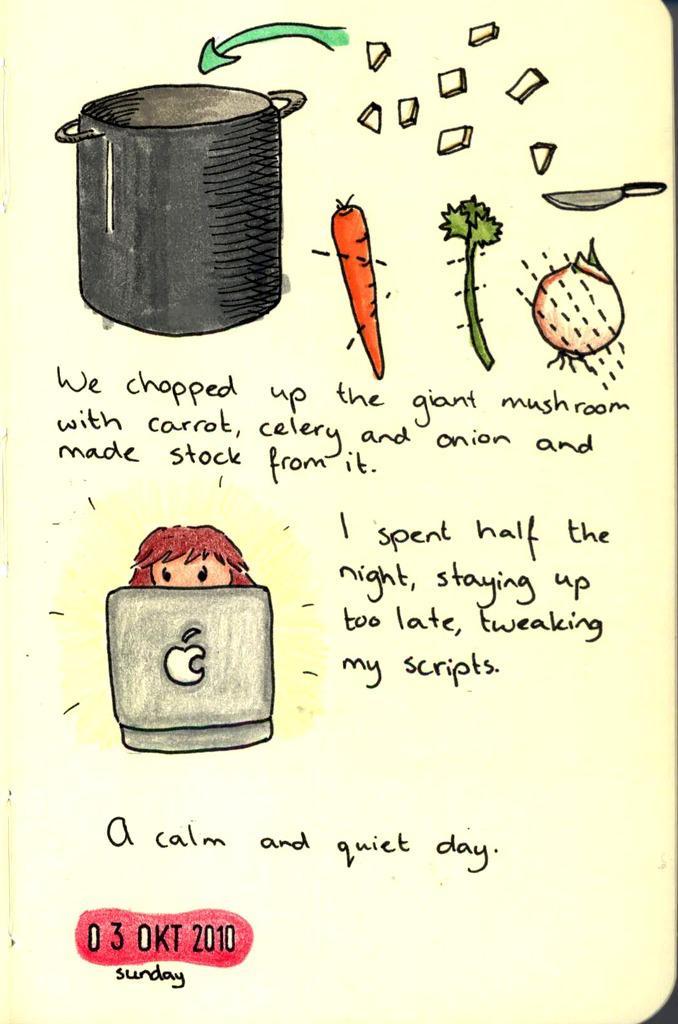 We chopped up the giant mushroom
with carrot, celery and onion and
made stock from it.
I spent half the
night, staying up
too late, tweaking
my scripts.
A calm and quiet day.
03 OKT 2010
sunday